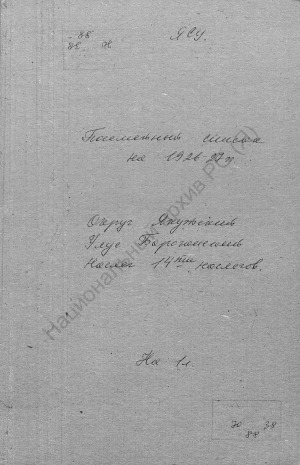 ЯСУ.
Посемейный список
на 1926-27 г
Округ Якутский
Улус Борогонский
Наслег 14ти наслегов.
На 1 л.
70 38
88
Национальный архив РС (Я)